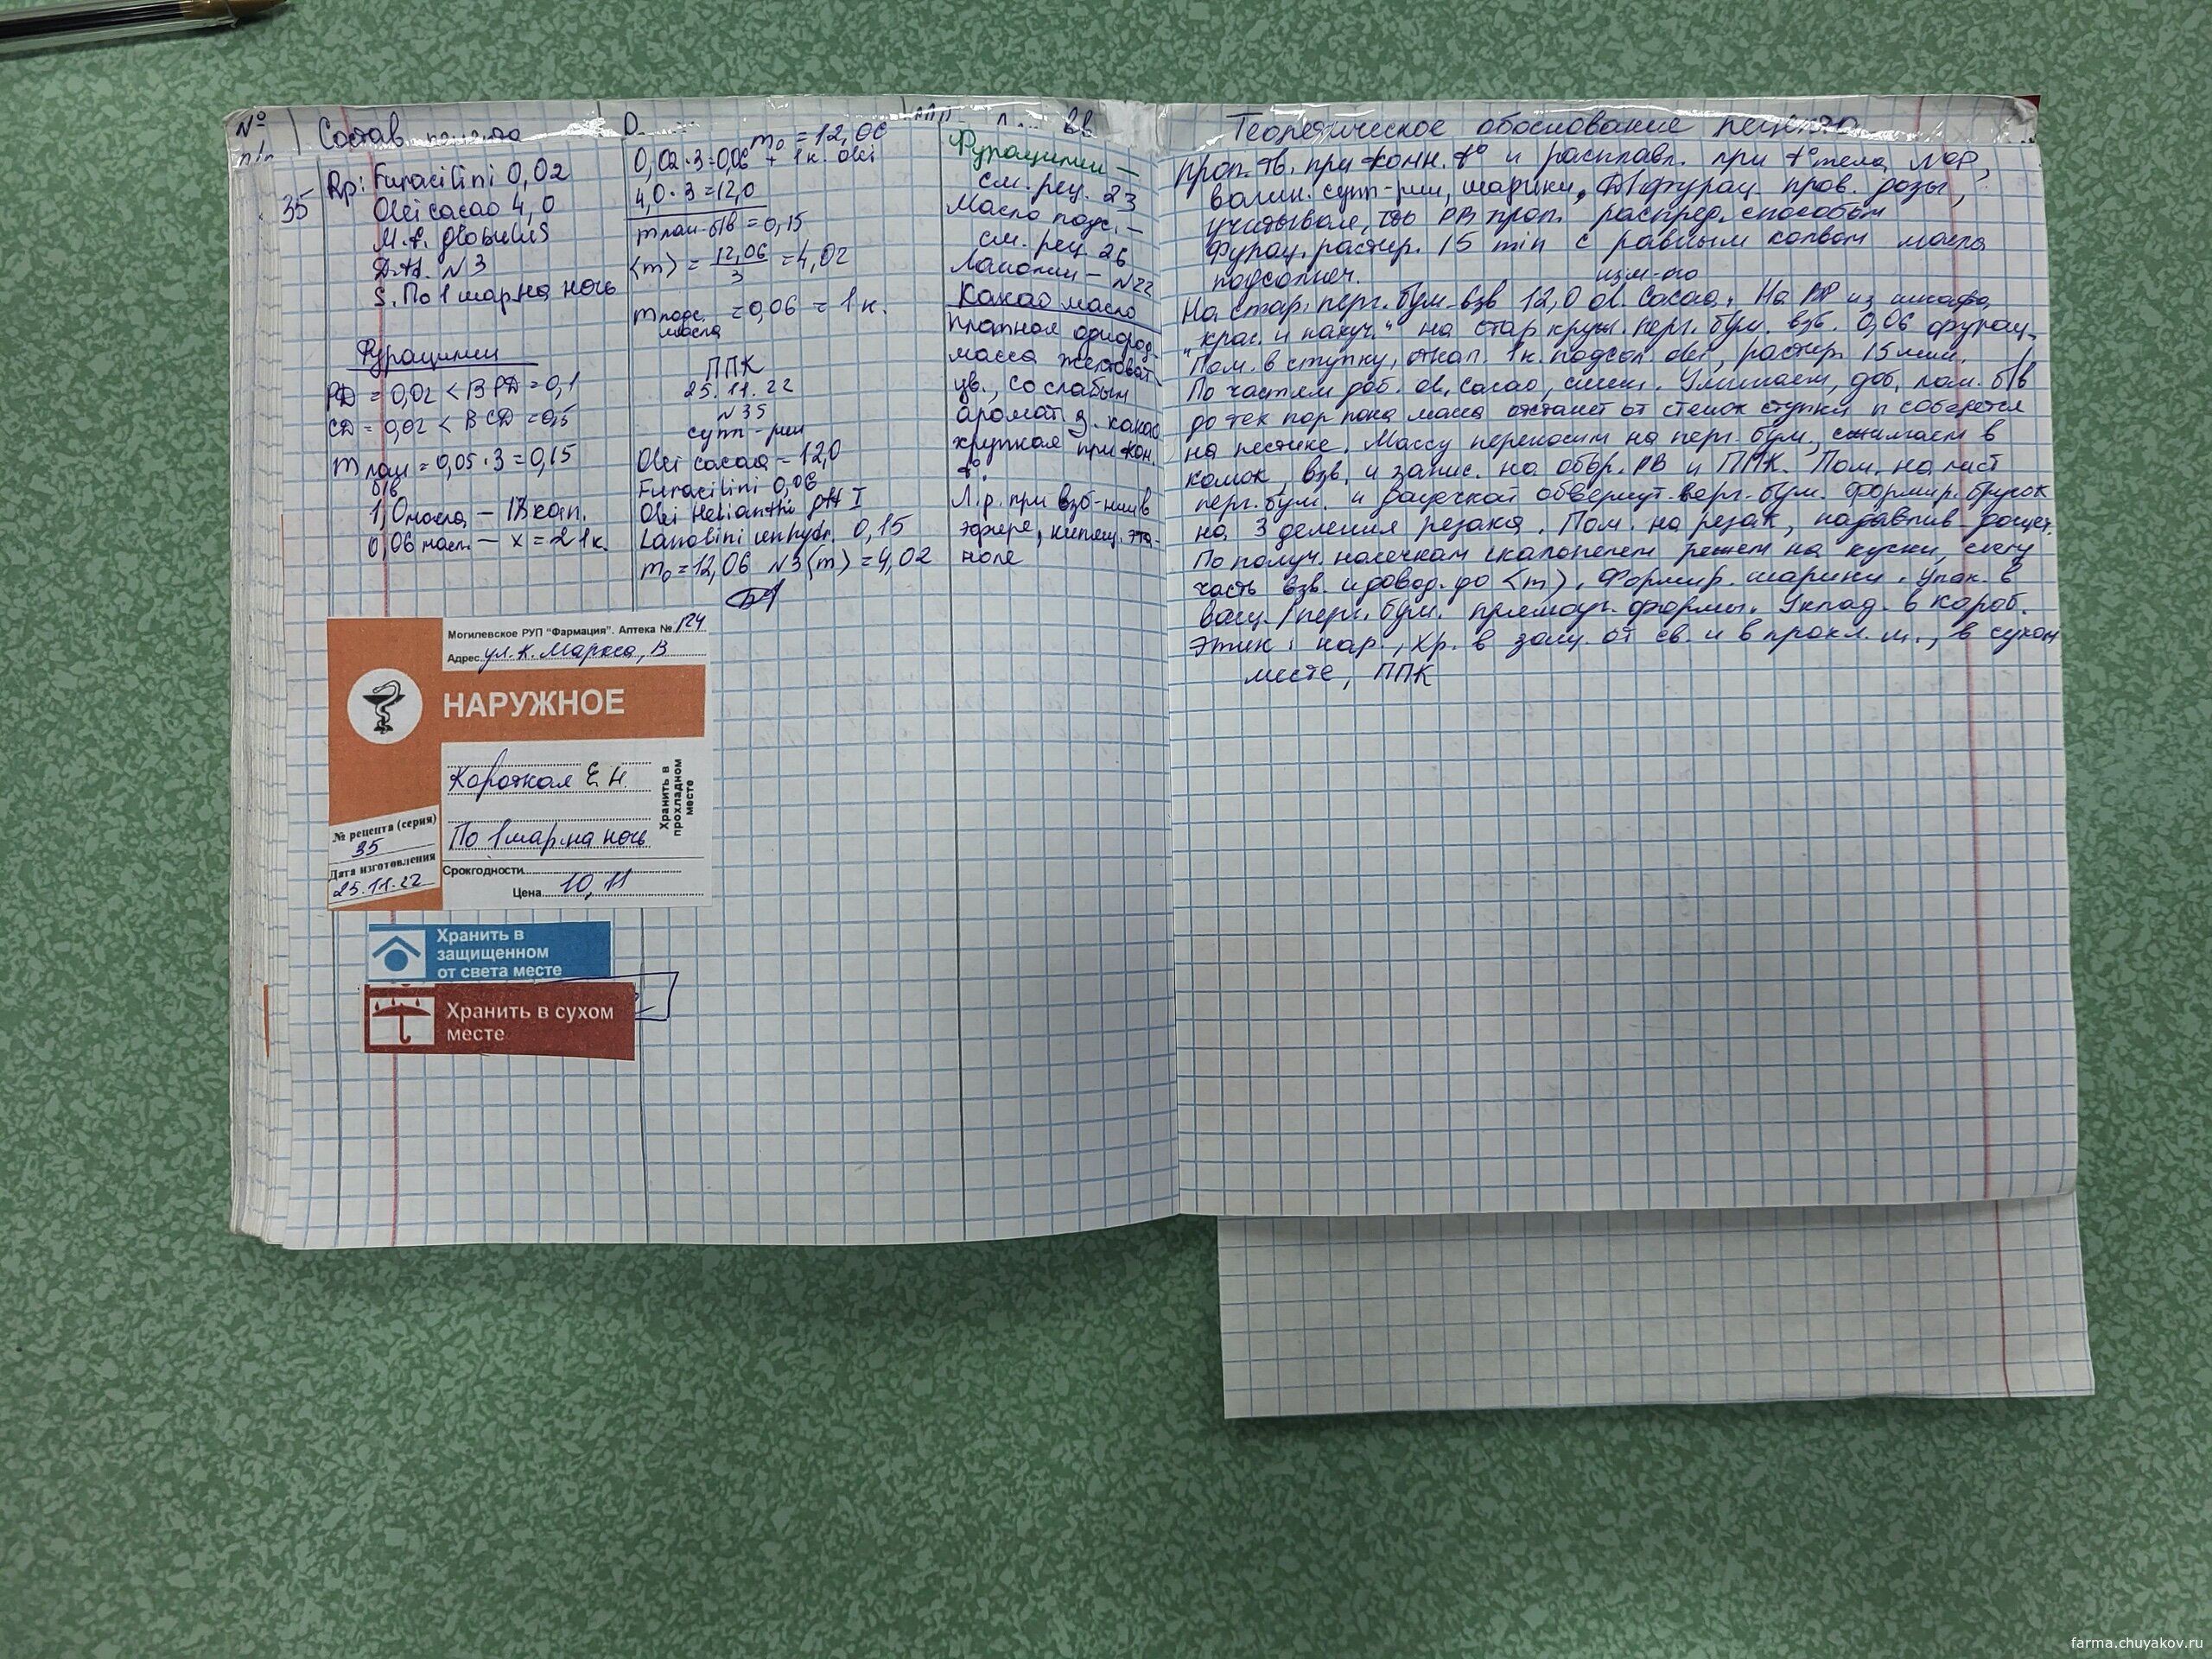 № п/п
Состав рецепта
35
Rp: Furacilini 0,02
Olei cacao 4,0
M.f. globulus
D.t.d. N 3
S. По 1 шар. на ночь
Фурацилин
РД = 0,02 < ВРД = 0,1
СД = 0,02 < ВСД = 0,5
m лан б/в = 0,05·3 = 0,15
1,0 масла – кап.
0,06 масл – x = 1к.
m₀ = 12,06
0,02·3=0,06 + 1к. olei
4,0·3=12,0
m лан. б/в = 0,15
⟨m⟩ = 12,06/3 = 4,02
m подс. масла = 0,06 = 1к.
ППК
25.11.22
N 35
супп-рии
Olei cacao – 12,0
Furacilini 0,06
Olei Helianthi gtt I
Lanolini anhydr. 0,15
m₀=12,06 N3 ⟨m⟩ = 4,02
ВВ
Фурацилин –
см. рец. 23
Масло подс. –
см. рец. 26
Ланолин – N22
Какао масло
плотная однород.
масса желтоват.
цв., со слабым
аромат. з. какао
хрупкая при кон.
t°.
Л.р. при взб-нии в
эфире, кипящ. эта-
ноле
Могилевское РУП "Фармация". Аптека № 174
Адрес ул. К. Маркса, В
НАРУЖНОЕ
Короткая Е.Н.
По 1 шар. на ночь
Хранить в прохладном месте
№ рецепта (серия)
35
Дата изготовления
25.11.22
Срокгодности
Цена 10,11
Хранить в
защищенном
от света месте
Хранить в сухом
месте
Теоретическое обоснование рецепта
Проп. тв. при комн. t° и расплавл. при t° тела
вагин. супп-рии, шарики, фурац. пров. дозы,
учитывая, что РВ проп. распред. способом
Фурац. растир. 15 min с равным колвом масла
подсолнеч.
изм-го
На стар. перг. бум. взв 12,0 ol. cacao. На ВР из шкафа
"крас. и пахуч." на стар. круж. перг. бум. взв. 0,06 фурац.
Пом. в ступку, откап. 1к. подсол. olei, растир. 15 мин.
По частям доб. ol. cacao, смеш. Уминаем, доб. лан. б/в
до тех пор пока масса отстанет от стенок ступки и соберется
на пестике. Массу переносим на перг. бум., сжимаем в
комок, взв. и запис. на обор. РВ и ППК. Пом. на лист
перг. бум. и дощечкой обвернут. перг. бум. формир. брусок
на 3 деления резака. Пом. на резак, надавлив. дощеч.
По получ. насечкам скальпелем режем на куски, кажд.
часть взв. и довод. до ⟨m⟩. Формир. шарики. Упак. в
вощ./перг. бум. прямоуг. формы. Уклад. в короб.
Этик: нар., хр. в защ. от св. и в прохл. м., в сухом
месте, ППК
farma.chuyakov.ru